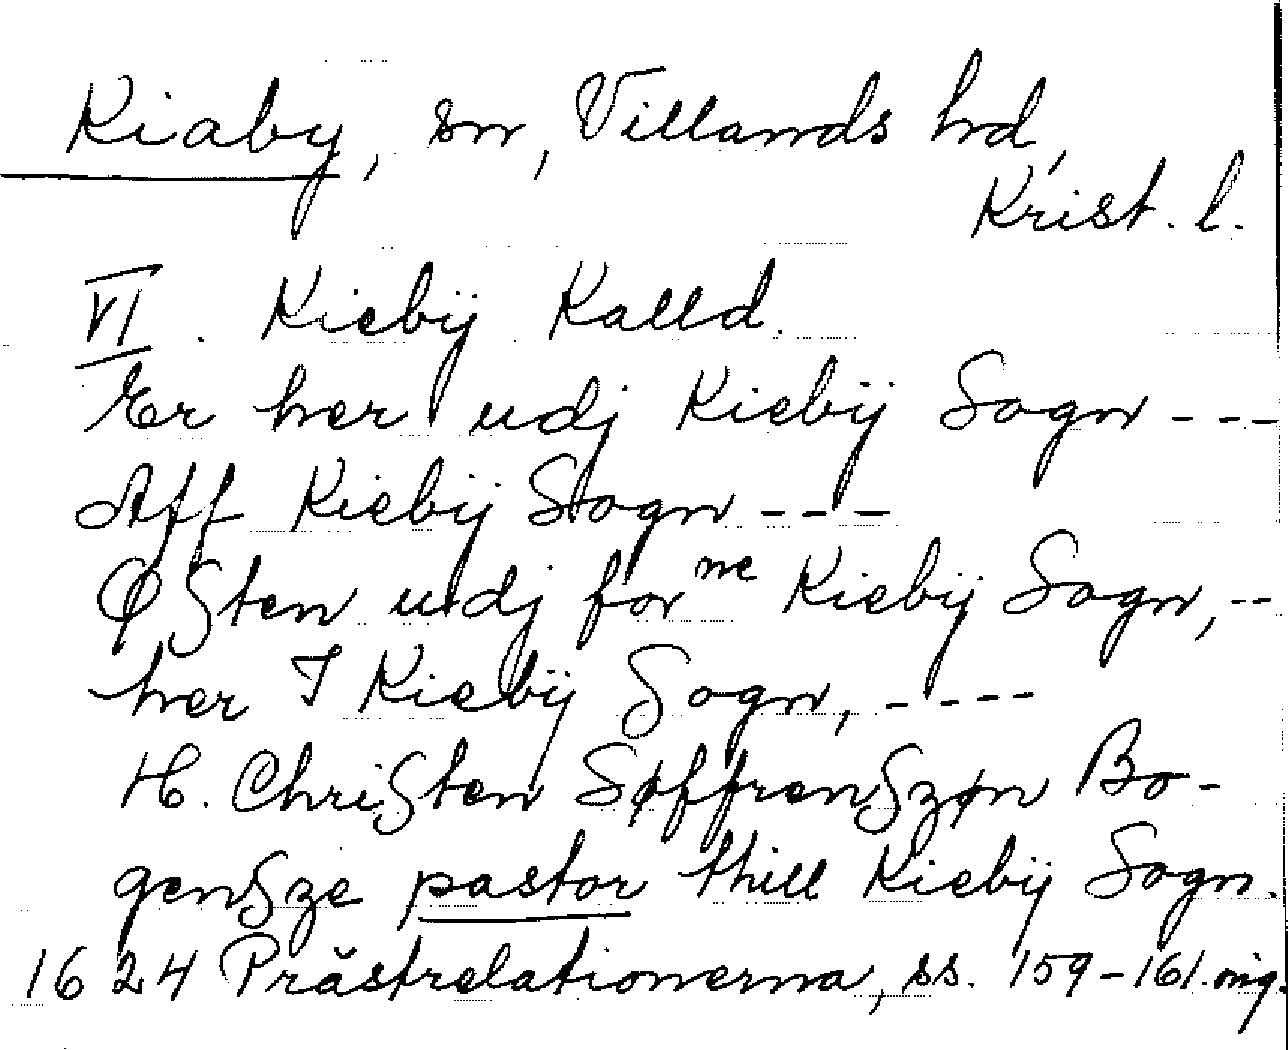 Kiaby, sn, Villands hd,
Krist. l.
VI. Kiebÿ Kalld.
Er her udj Kiebÿ Sogn ---
Aff Kiebÿ Sogn ---
Østen udj for ne Kiebÿ Sogn, --
her I Kiebÿ Sogn, ----
H. Christen Søffrenszøn Bo-
gensze pastor thill Kiebÿ Sogn.
1624 Prästrelationerna, ss. 159-161. orig.